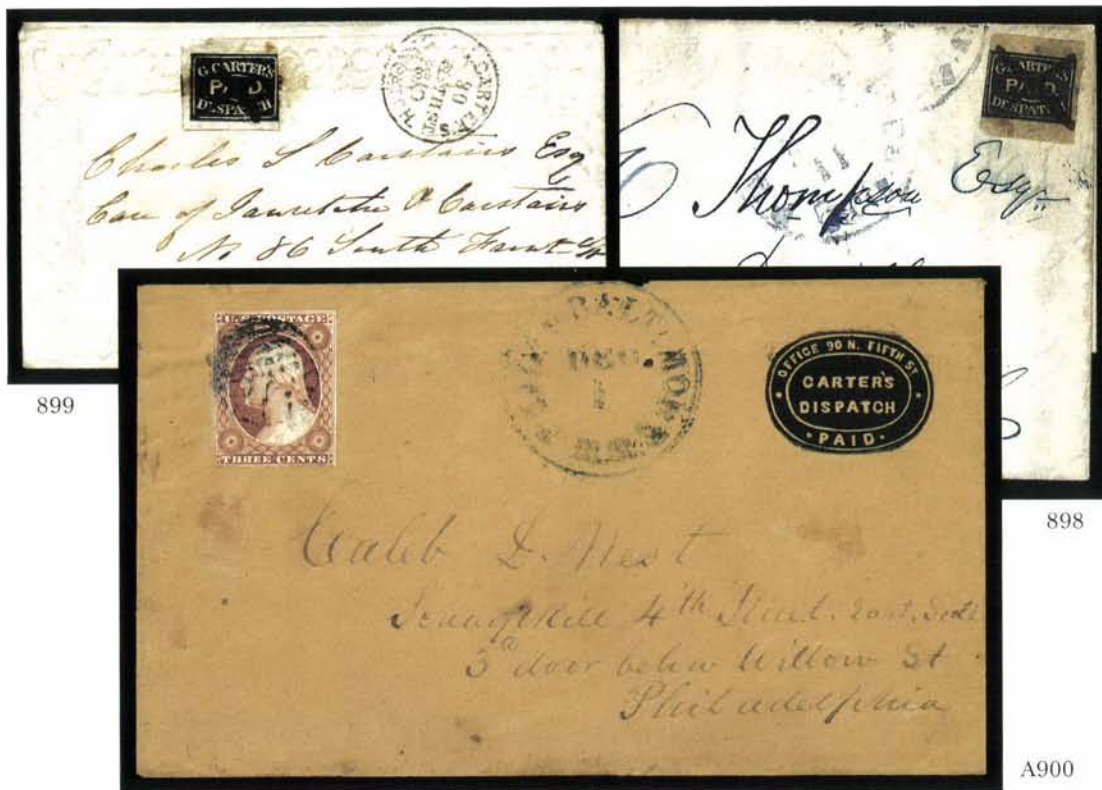 G. CARTER'S
PAID
DESPATCH
CARTER'S
Charles S Carstairs Esq
Care of & Carstairs
No 86 South Front St
899
G. CARTER'S
PAID.
DESPATCH
Thompson Esqr
898
U.S. POSTAGE
THREE CENTS
BALTIMORE
OFFICE 90 N. FIFTH ST
CARTER'S
DISPATCH
PAID
Caleb D. West
4th Street
3d door below Willow St
Philadelphia
A900